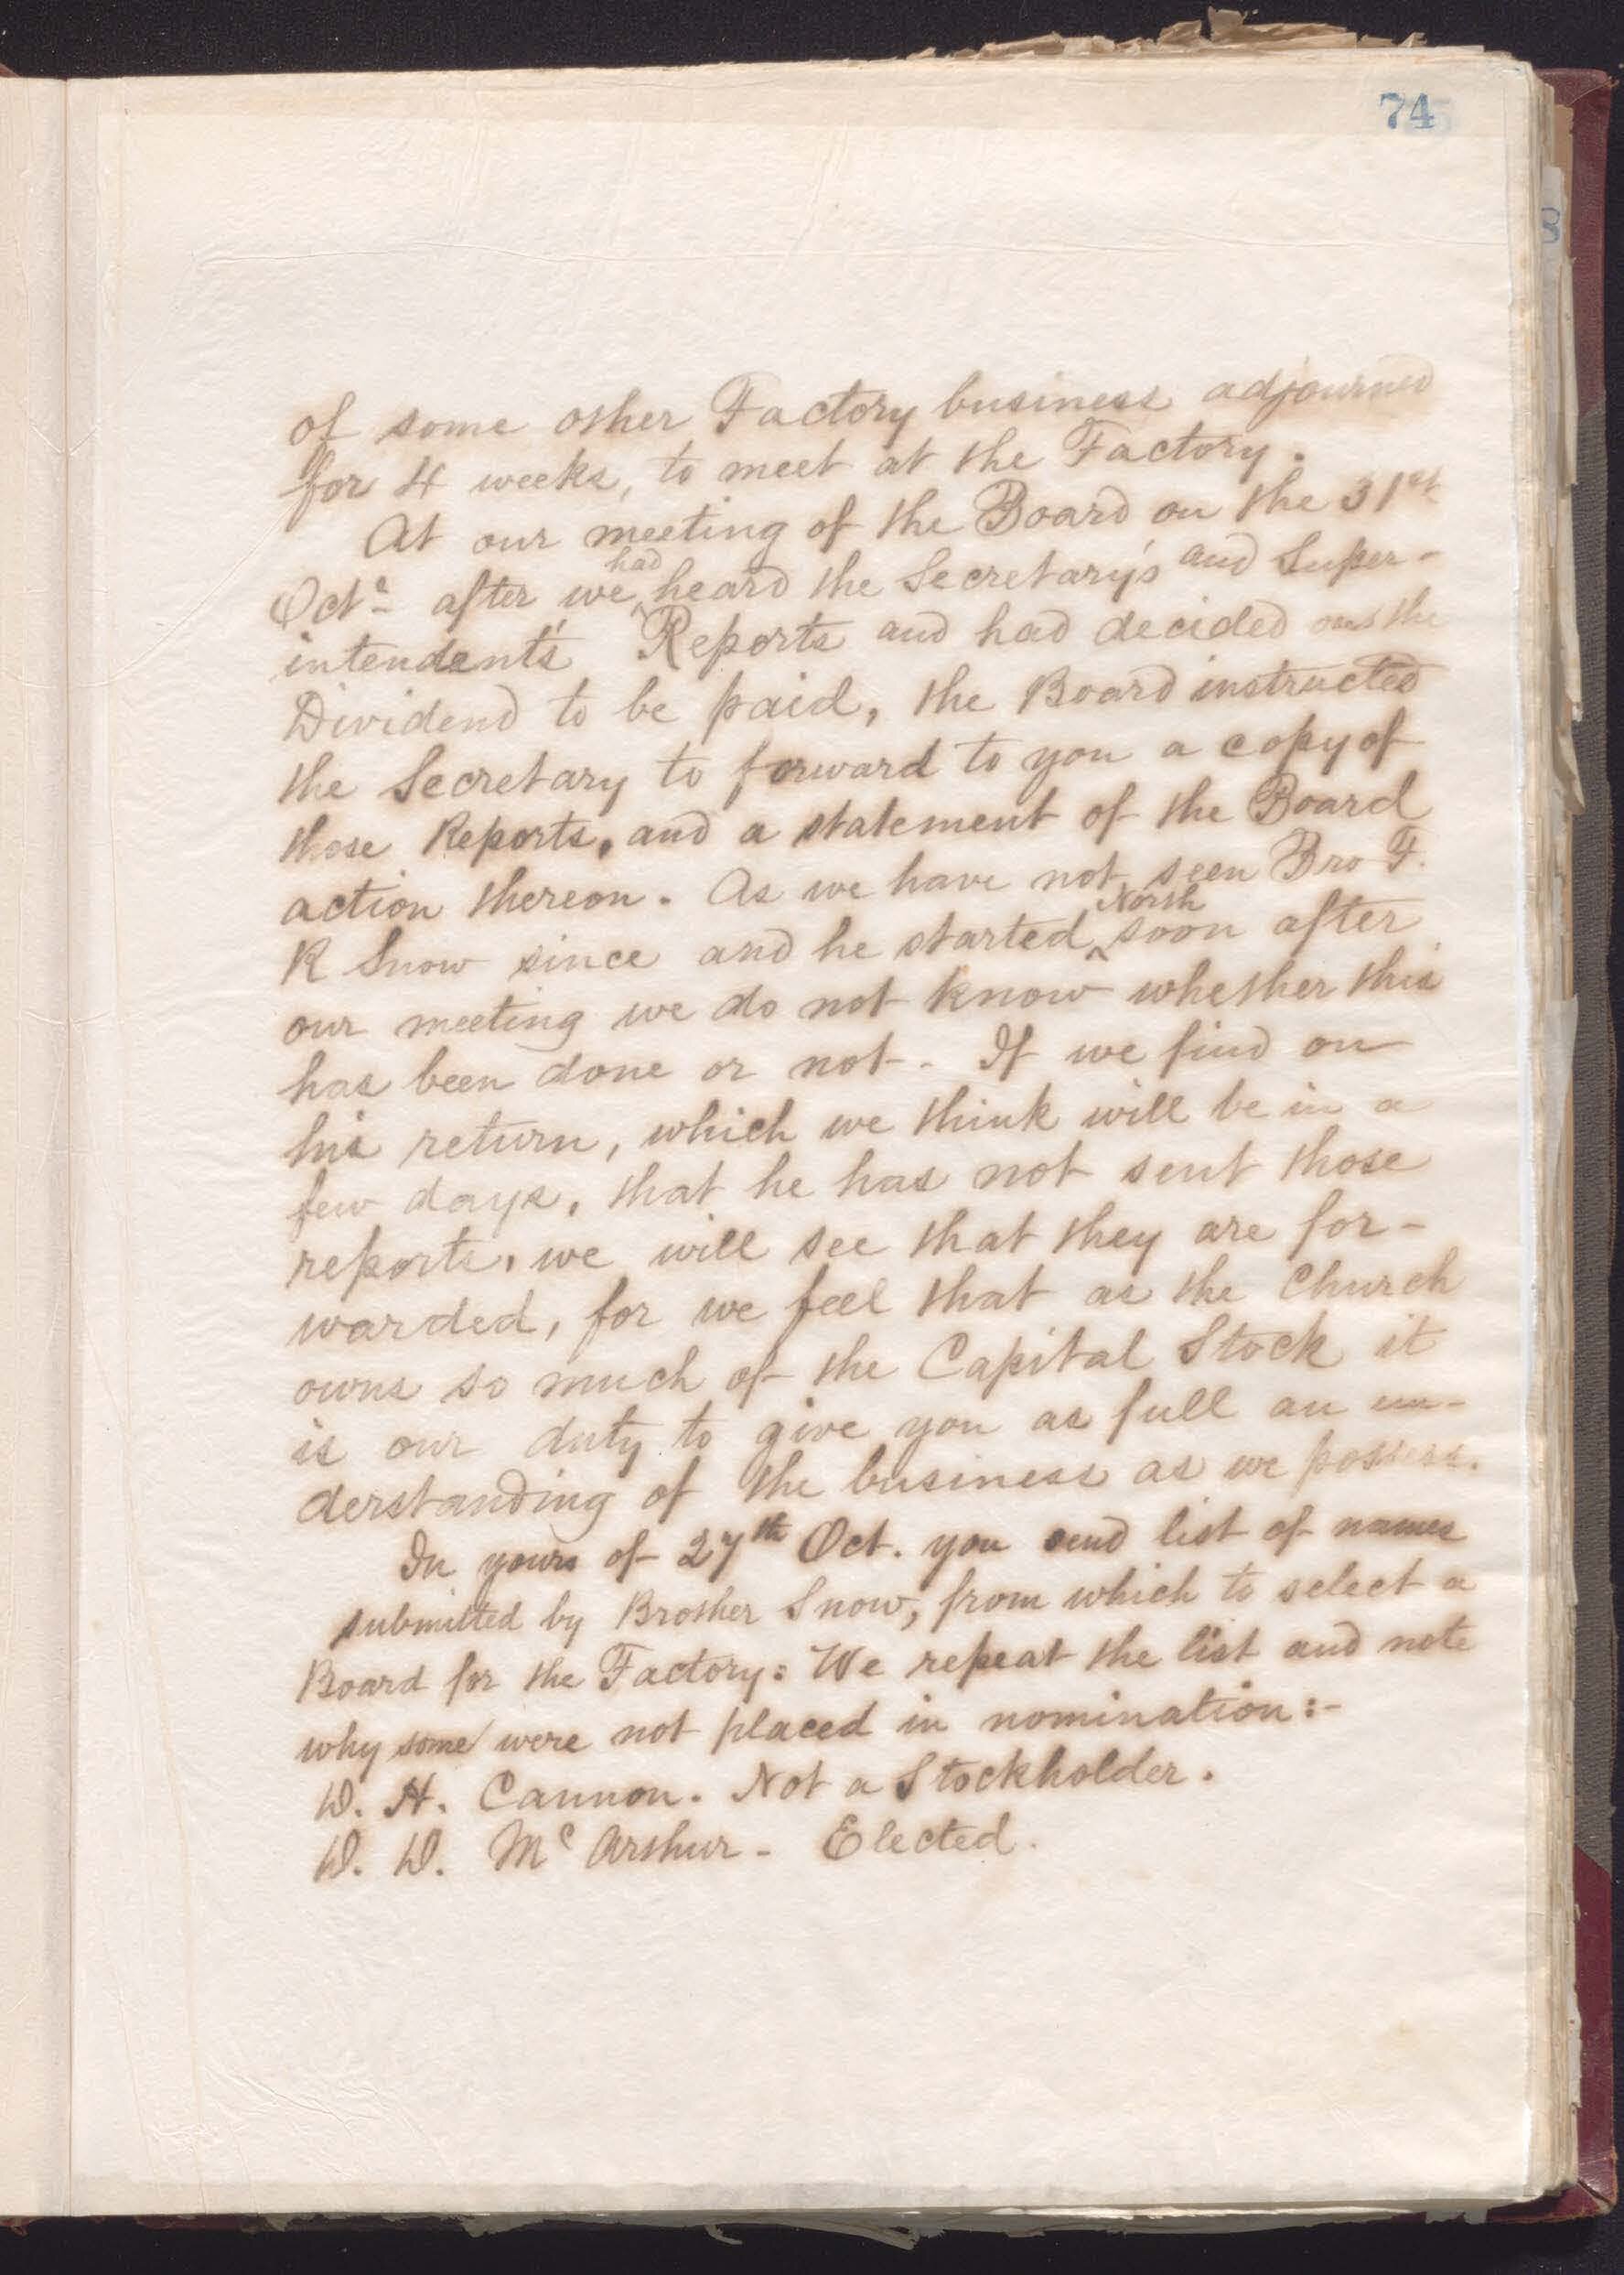 74
of some other Factory business adjourned
for 4 weeks, to meet at the Factory.
At our meeting of the Board on the 31st
Octr after we had heard the Secretary's and Super-
intendent's Reports and had decided on the
Dividend to be paid, the Board instructed
the Secretary to forward to you a copy of
those Reports, and a statement of the Board
action thereon. As we have not seen Bro F.
R Snow since and he started North soon after
our meeting we do not know whether this
has been done or not - If we find on
his return, which we think will be in a
few days, that he has not sent those
reports, we will see that they are for-
warded, for we feel that as the Church
owns so much of the Capital Stock it
is our duty to give you as full an un-
derstanding of the business as we possess.
In yours of 27th Oct. you send list of names
submitted by Brother Snow, from which to select a
Board for the Factory: We repeat the list and note
why some were not placed in nomination:-
D. H. Cannon. Not a Stockholder.
D. D. Mc Arthur - Elected.